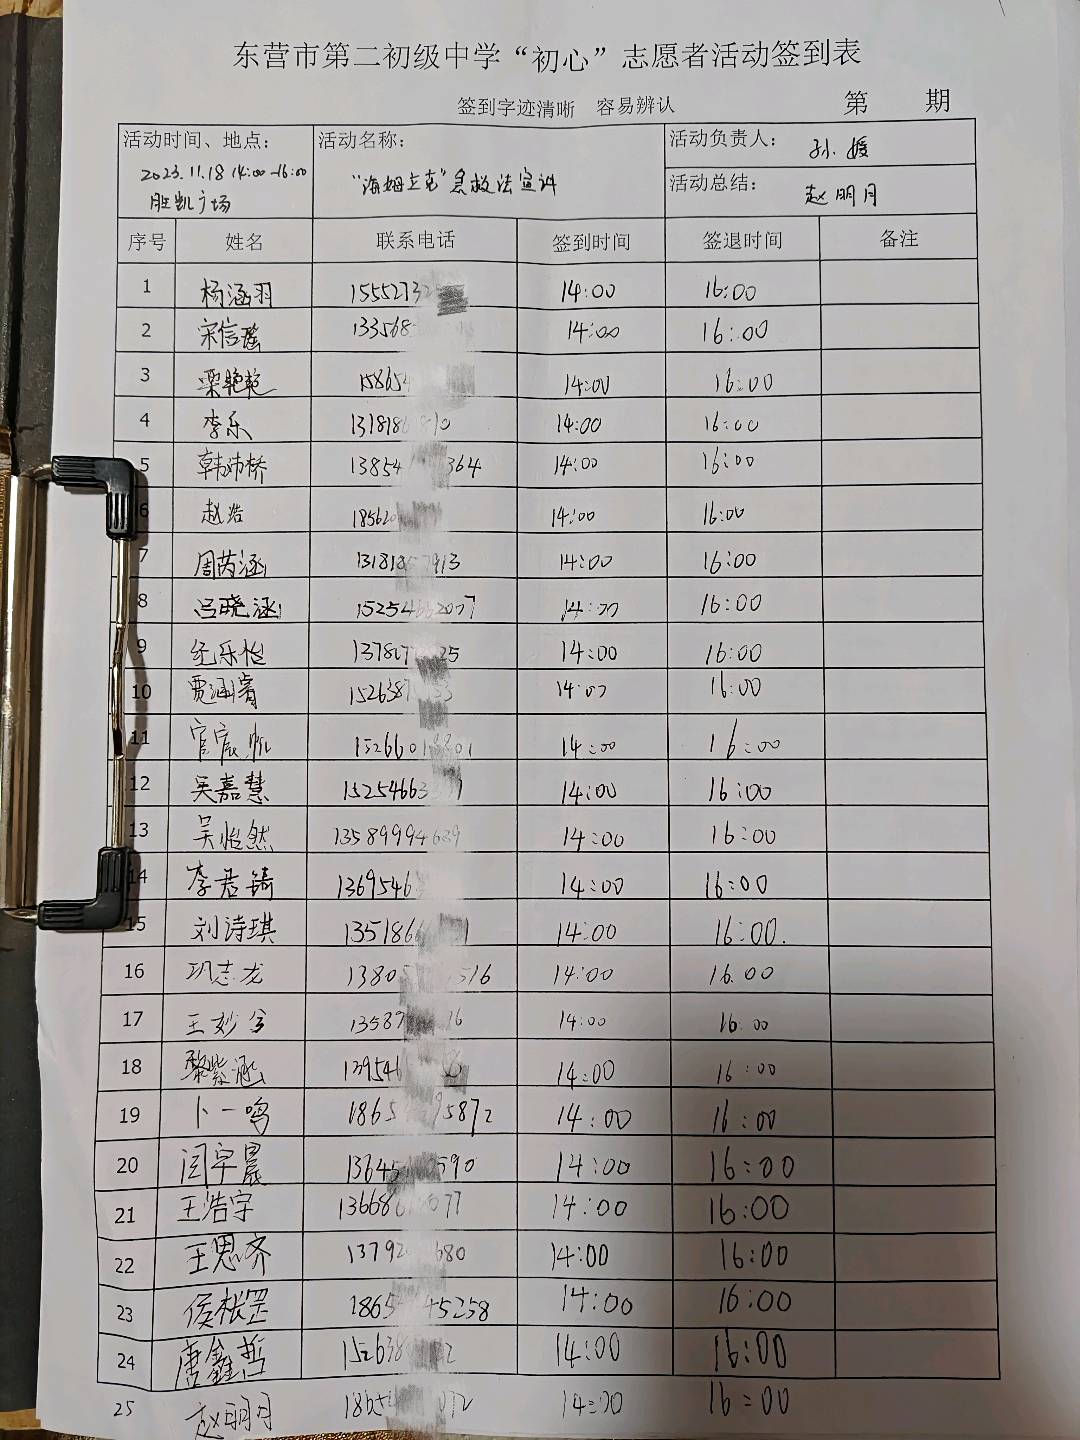 东营市第二初级中学“初心”志愿者活动签到表
签到字迹清晰 容易辨认 第 期
活动时间、地点： 活动名称： 活动负责人： 孙媛
2023.11.18 14:00-16:00 “海姆立克”急救法宣讲 活动总结： 赵明月
胜凯广场
序号 姓名 联系电话 签到时间 签退时间 备注
1 杨涵羽 1555273 14:00 16:00
2 宋信瑶 133568 14:00 16:00
3 栗艳艳 158654 14:00 16:00
4 李乐 131818 10 14:00 16:00
5 韩炜桥 13854 364 14:00 16:00
6 赵浩 18562 14:00 16:00
7 周芮涵 131818 913 14:00 16:00
8 吕晓涵 15254 2007 14:00 16:00
9 纪乐怡 13780 25 14:00 16:00
10 贾涵睿 152638 14:00 16:00
11 官宸帆 1526601 14:00 16:00
12 吴嘉慧 15254663 14:00 16:00
13 吴怡然 13589994639 14:00 16:00
14 李君锜 1369546 14:00 16:00
15 刘诗琪 1351866 14:00 16:00.
16 巩志龙 1380 516 14:00 16.00
17 王妙兮 13589 16 14:00 16:00
18 黎紫涵 139546 14:00 16:00
19 卜一鸣 18654 5872 14:00 16:00
20 闫宇晨 13645 590 14:00 16:00
21 王浩宇 136686 077 14:00 16:00
22 王思齐 13792 680 14:00 16:00
23 侯 罡 1865 45258 14:00 16:00
24 唐鑫哲 152638 2 14:00 16:00
25 赵明月 18654 072 14:00 16:00